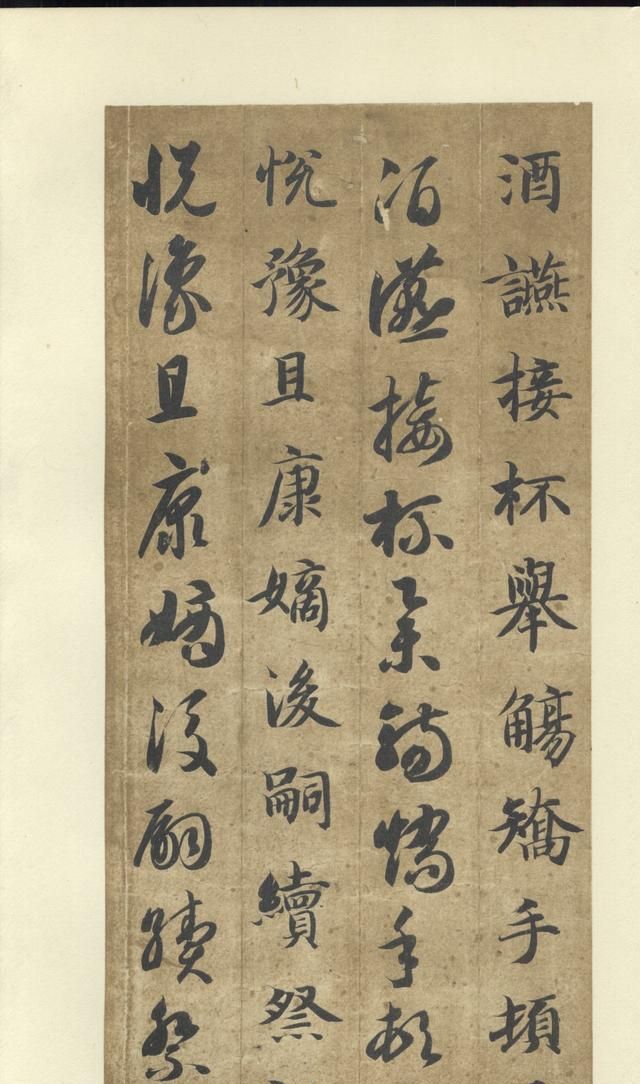 酒讌接杯舉觴矯手頓
酒讌接杯舉觴矯手頓
悅豫且康嫡後嗣續祭
悅豫且康嫡後嗣續祭